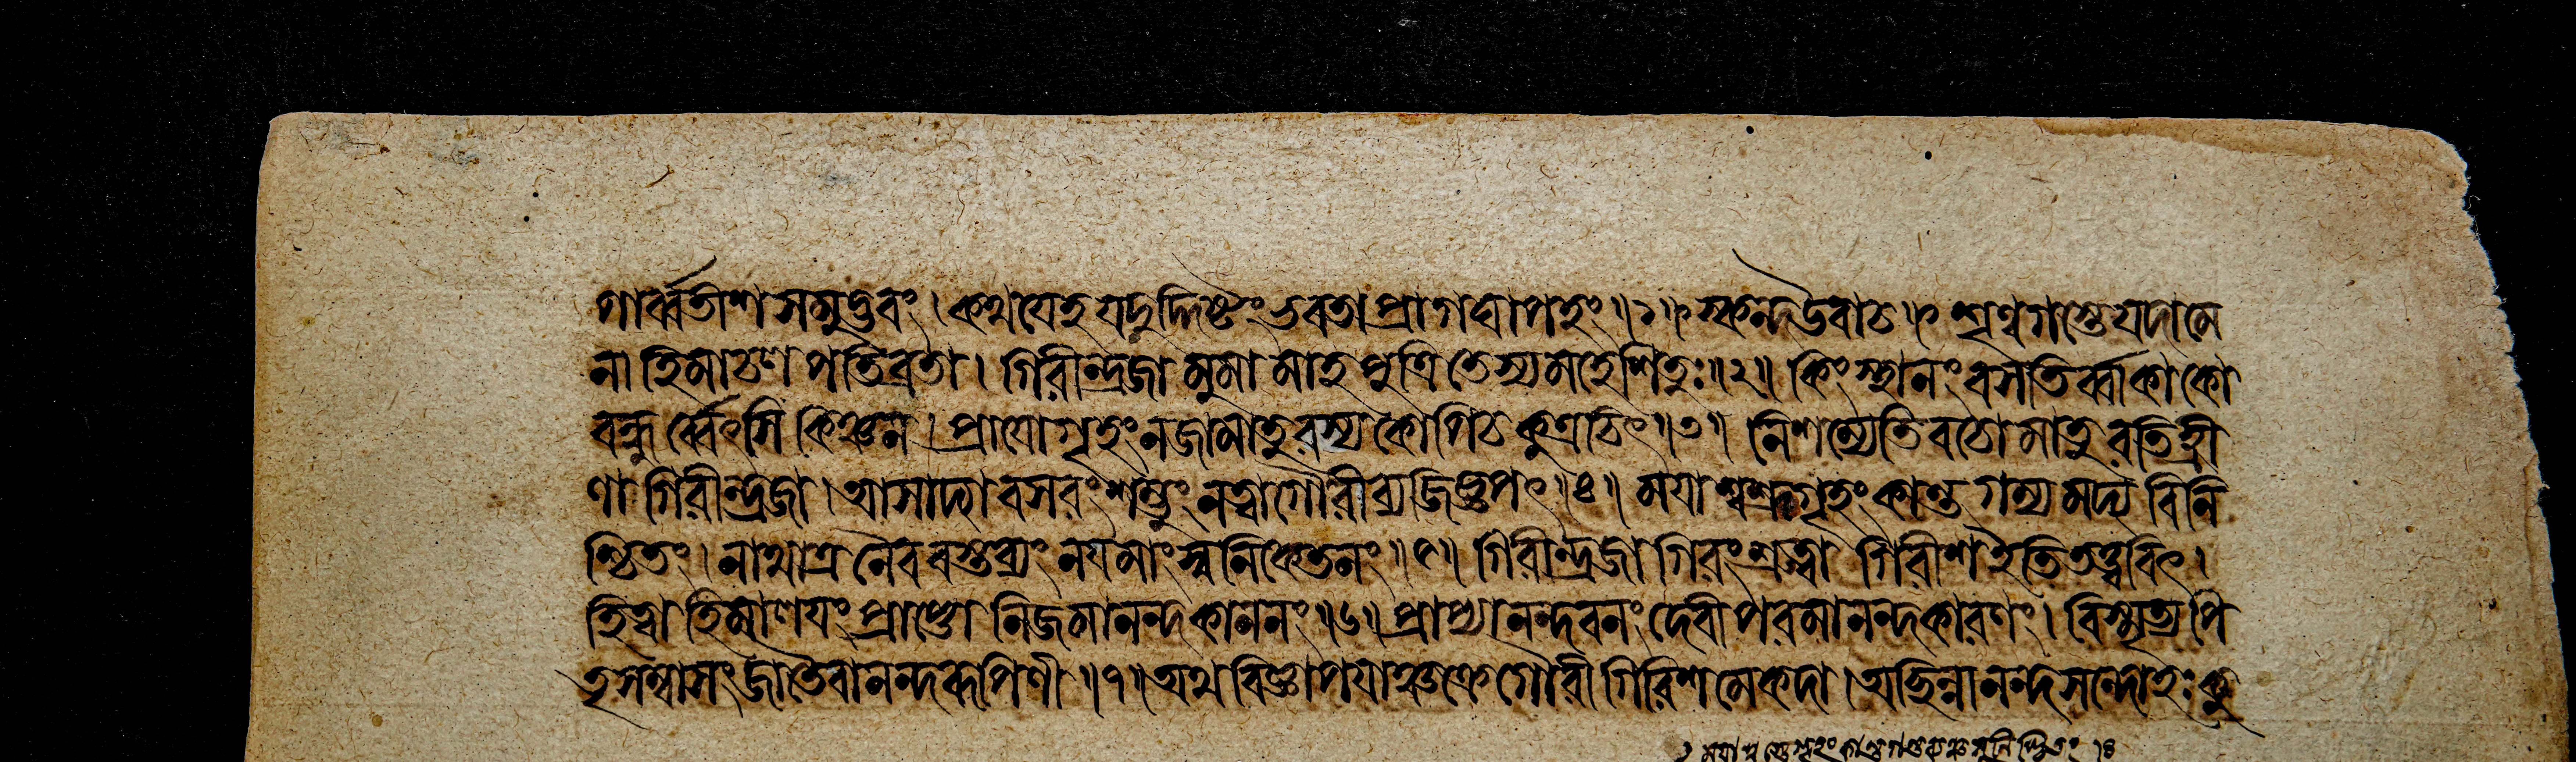 পার্ব্বতীশ সমুদ্ভবং । কথয়েহ যদুদ্দিষ্টং ভবতা প্রাগঘাপহং ॥১॥ স্কন্দ উবাচ ॥ শৃণ্বগস্ত্যে যদা মে
না হিমাচল পতিব্রতা । গিরীন্দ্রজা মুমা মাহ পুত্রি তেস্য মহেশিতুঃ ॥২॥ কিং স্থানং বসতির্ব্বা কা কো
বন্ধুর্ব্বেৎসি কিঞ্চন । প্রায়ো গৃহং ন জামাতু রস্য কোপি চ কুত্রচিৎ ॥৩॥ নিশম্যেতি বচো মাতু রতিহ্রী
ণা গিরীন্দ্রজা । আসাদ্যাবসরং শম্ভুং নত্বা গৌরী ব্যজিজ্ঞপৎ ॥৪॥ ময়া শ্বশ্রূগৃহং কান্ত গম্য মদ্য বিনি
শ্চিতং । নাথাত্র নৈব বস্তব্যং নয় মাং স্ব নিকেতনং ॥৫॥ গিরীন্দ্রজা গিরং শ্রুত্বা গিরীশ ইতি তত্ত্ববিৎ ।
হিত্বা হিমালয়ং প্রাপ্তো নিজমানন্দকাননং ॥৬॥ প্রাপ্যানন্দবনং দেবী পরমানন্দকারণং । বিস্মৃত্য পি
তৃসম্বাসং জাতৈবানন্দরূপিণী ॥৭॥ অথ বিজ্ঞাপয়াঞ্চক্রে গৌরী গিরিশ মেকদা । অচ্ছিন্নানন্দ সন্দোহঃ কু